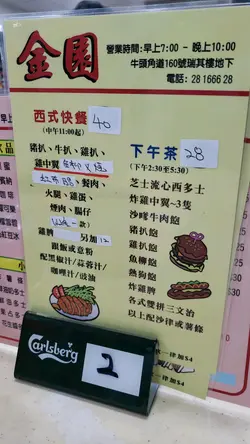 金園
營業時間:早上7:00 - 晚上10:00
牛頭角道160號瑞其樓地下
電話: 28166628
西式快餐 40
(中午11:00起)
豬扒、牛扒、雞扒、
雞中翼
餐肉、
火腿、雞蛋、
煙肉、腸仔
雞髀 另加12
跟飯或意粉
配黑椒汁/蒜蓉汁/
咖哩汁/豉油
下午茶 28
(下午2:30至5:30)
芝士流心西多士
炸雞中翼~3隻
沙嗲牛肉飽
豬扒飽
雞扒飽
魚柳飽
熱狗飽
炸雞髀
各式雙拼三文治
以上配沙律或薯條
一律加$4
一律加$4
Carlsberg
2